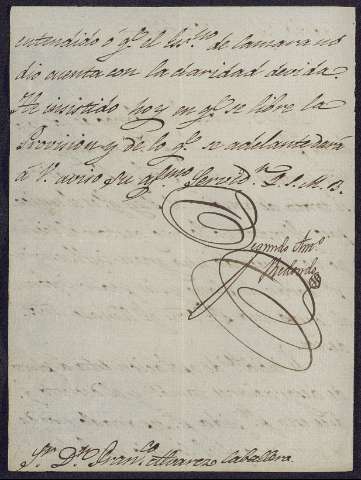 entendido ó q.e el Es.no de Camara no
dio cuenta con la claridad devida.
He insistido hoy en q.e se libre la
Provision, y de lo q.e se adelante dará
á V. aviso su af.mo Servid.r Q.S.M.B.
Segundo Ant.o
Redondo
S.or D.n Fran.co Alvarez Caballero.